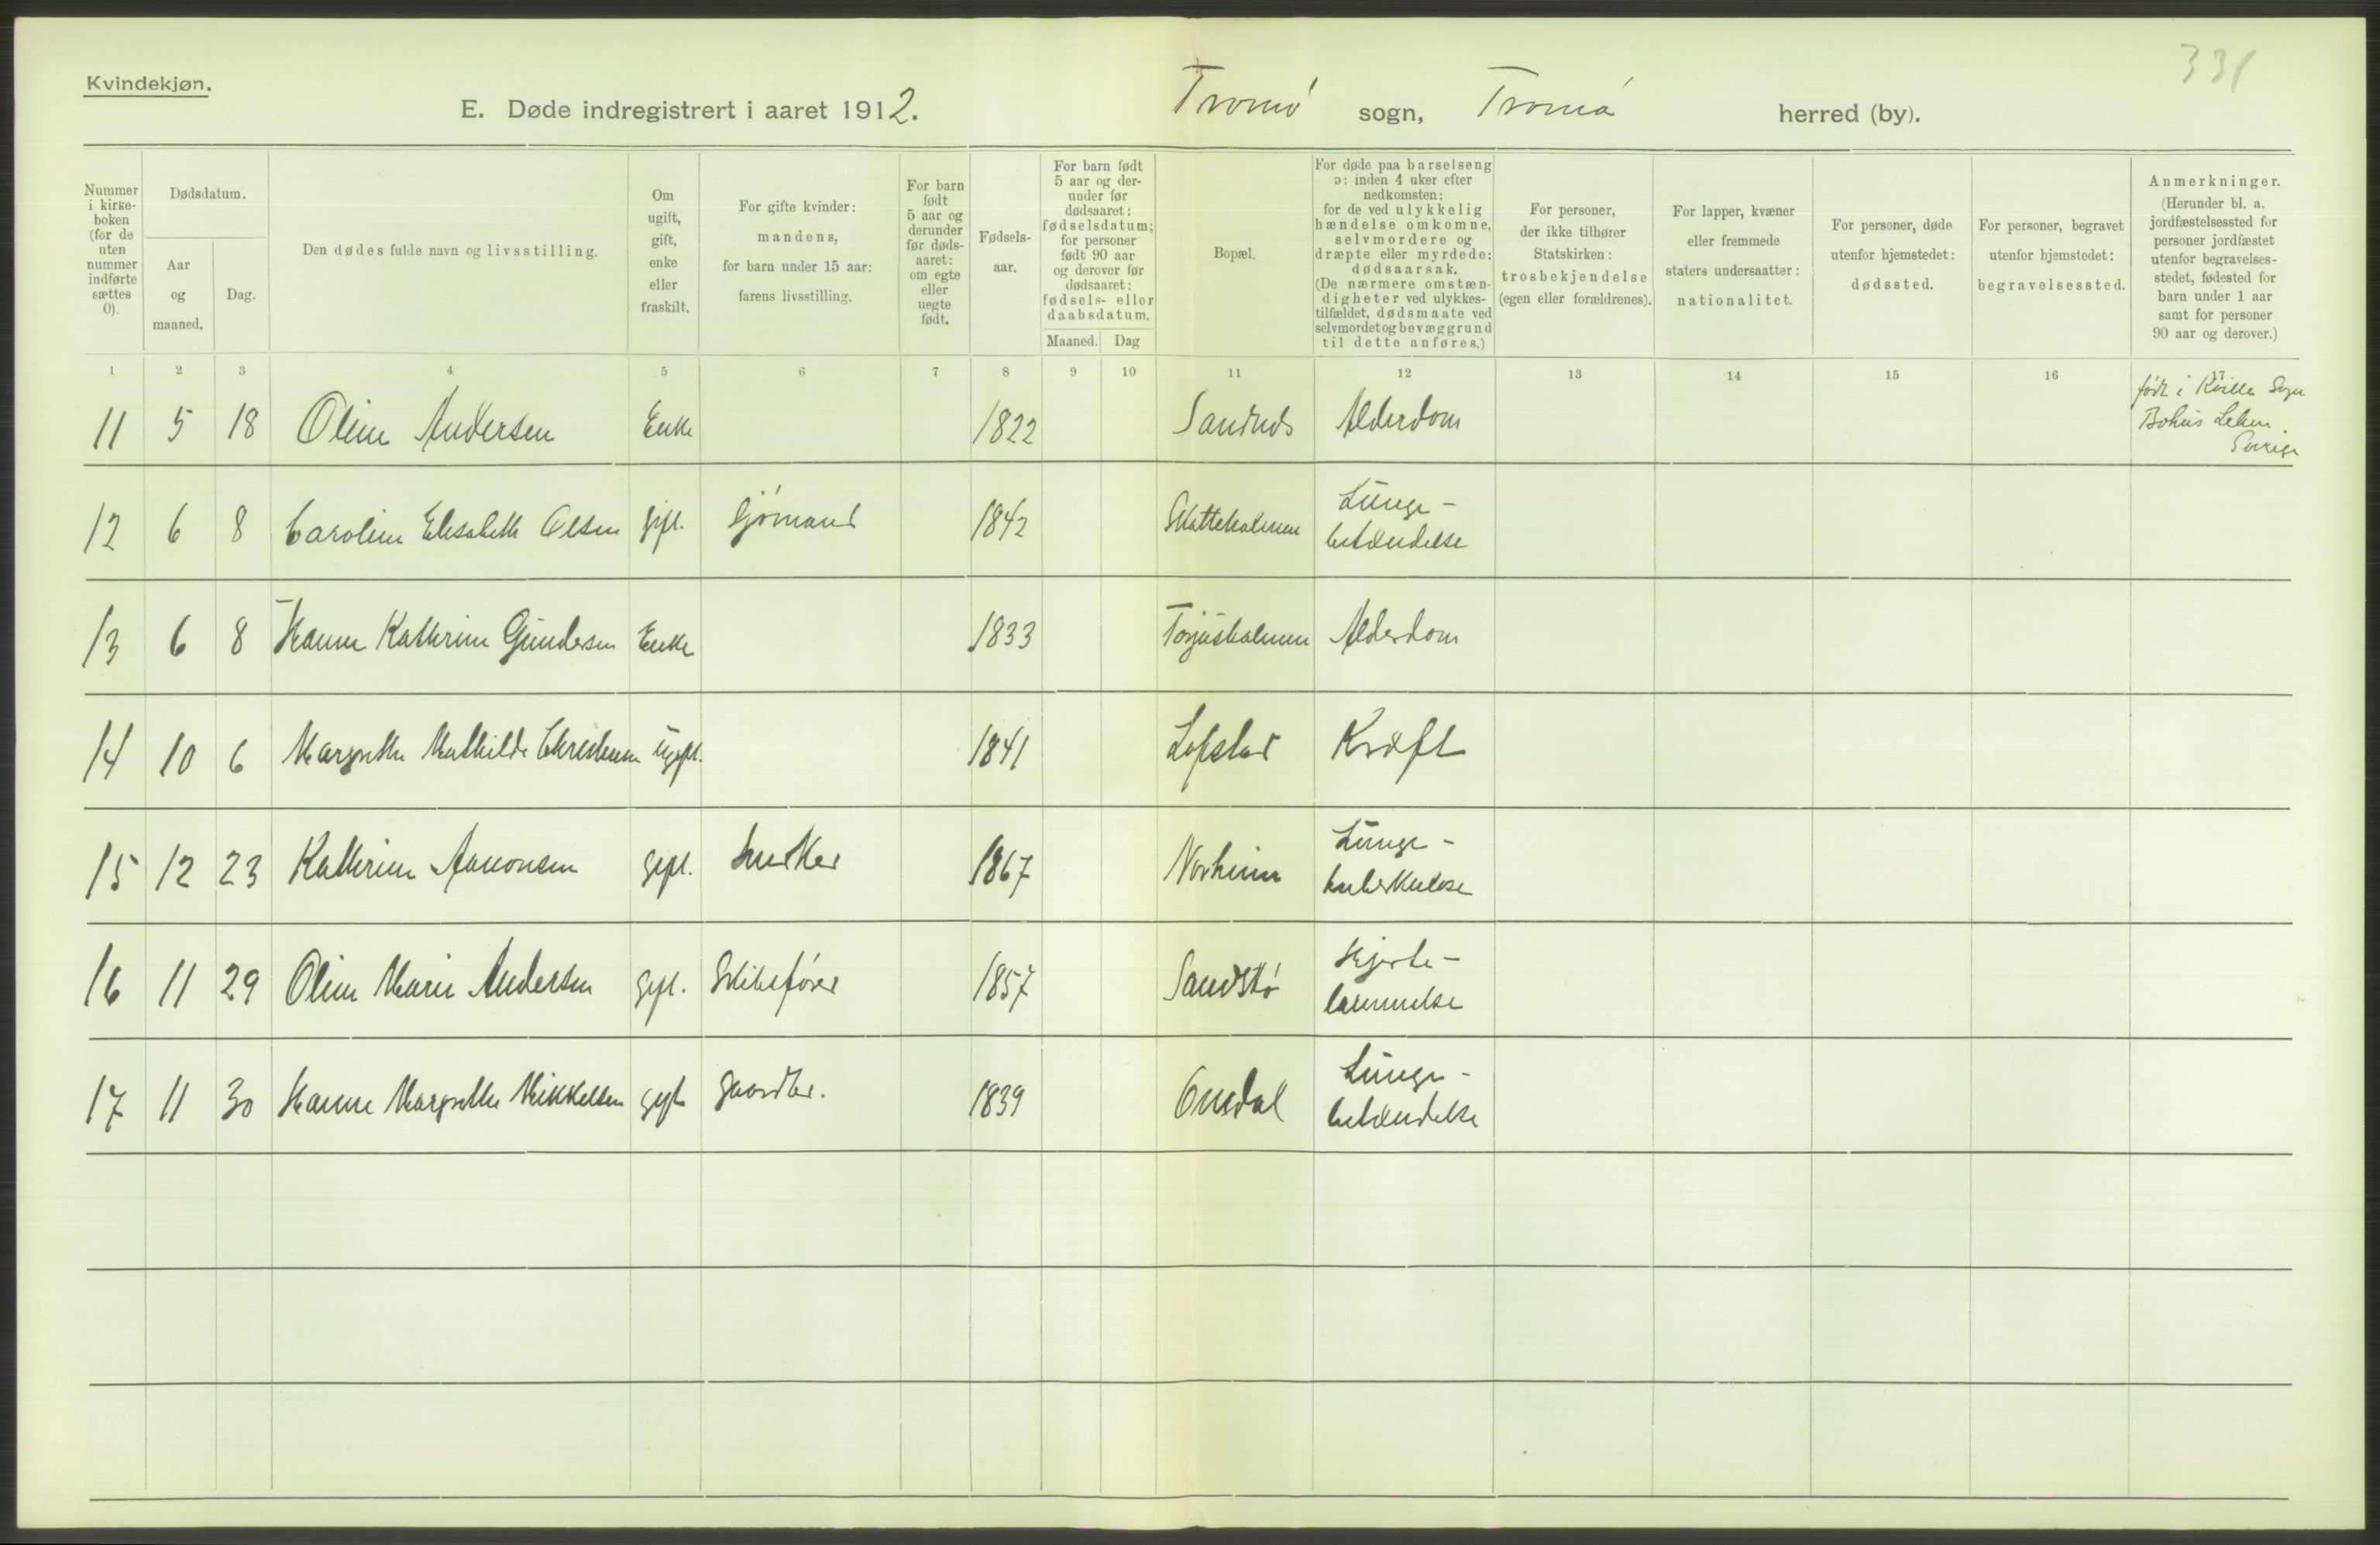 331
Kvindekjøn.
E. Døde indregistrert i aaret 1912. Tromø sogn, Tromø herred (by).
Nummer i kirke-boken (for de uten nummer indførte sættes 0).
Dødsdatum.
Aar og maaned.
Dag.
Den dødes fulde navn og livsstilling.
Om ugift, gift, enke eller fraskilt.
For gifte kvinder: mandens, for barn under 15 aar: farens livsstilling.
For barn født 5 aar og derunder før døds-aaret: om egte eller uegte født.
Fødsels-aar.
For barn født 5 aar og der-under før dødsaaret: fødselsdatum; for personer født 90 aar og derover før dødsaaret: fødsels- eller daabsdatum.
Maaned. Dag
Bopæl.
For døde paa barselseng ɔ: inden 4 uker efter nedkomsten: for de ved ulykkelig hændelse omkomne, selvmordere og dræpte eller myrdede: dødsaarsak. (De nærmere omstæn-digheter ved ulykkes-tilfældet, dødsmaate ved selvmordet og bevæggrund til dette anføres.)
For personer, der ikke tilhører Statskirken: trosbekjendelse (egen eller forældrenes).
For lapper, kvæner eller fremmede staters undersaatter: nationalitet.
For personer, døde utenfor hjemstedet: dødssted.
For personer, begravet utenfor hjemstedet: begravelsessted.
Anmerkninger. (Herunder bl. a. jordfæstelsessted for personer jordfæstet utenfor begravelses-stedet, fødested for barn under 1 aar samt for personer 90 aar og derover.)
1 2 3 4 5 6 7 8 9 10 11 12 13 14 15 16 17
11 5 18 Oline Andersen Enke 1822 Sandnes Alderdom født i Kville Sogn
Bohus Lehn
Sverige
12 6 8 Caroline Elisabeth Olsen gift. Sjømand 1842 Skatteholmen Lunge-
betændelse
13 6 8 Hanne Kathrine Gundersen Enke 1833 Torjusholmen Alderdom
14 10 6 Margrethe Mathilde Christensen ugift. 1841 Lofstad Kræft
15 12 23 Kathrine Aanonsen gift. 1867 Lunge-
tuberkulose
16 11 29 Oline Marie Andersen gift. Skibsfører 1857 Sandstø Hjerte-
lammelse
17 11 30 Hanne Margrethe Mikkelsen gift gaardbr. 1839 Omdal Lunge-
betændelse